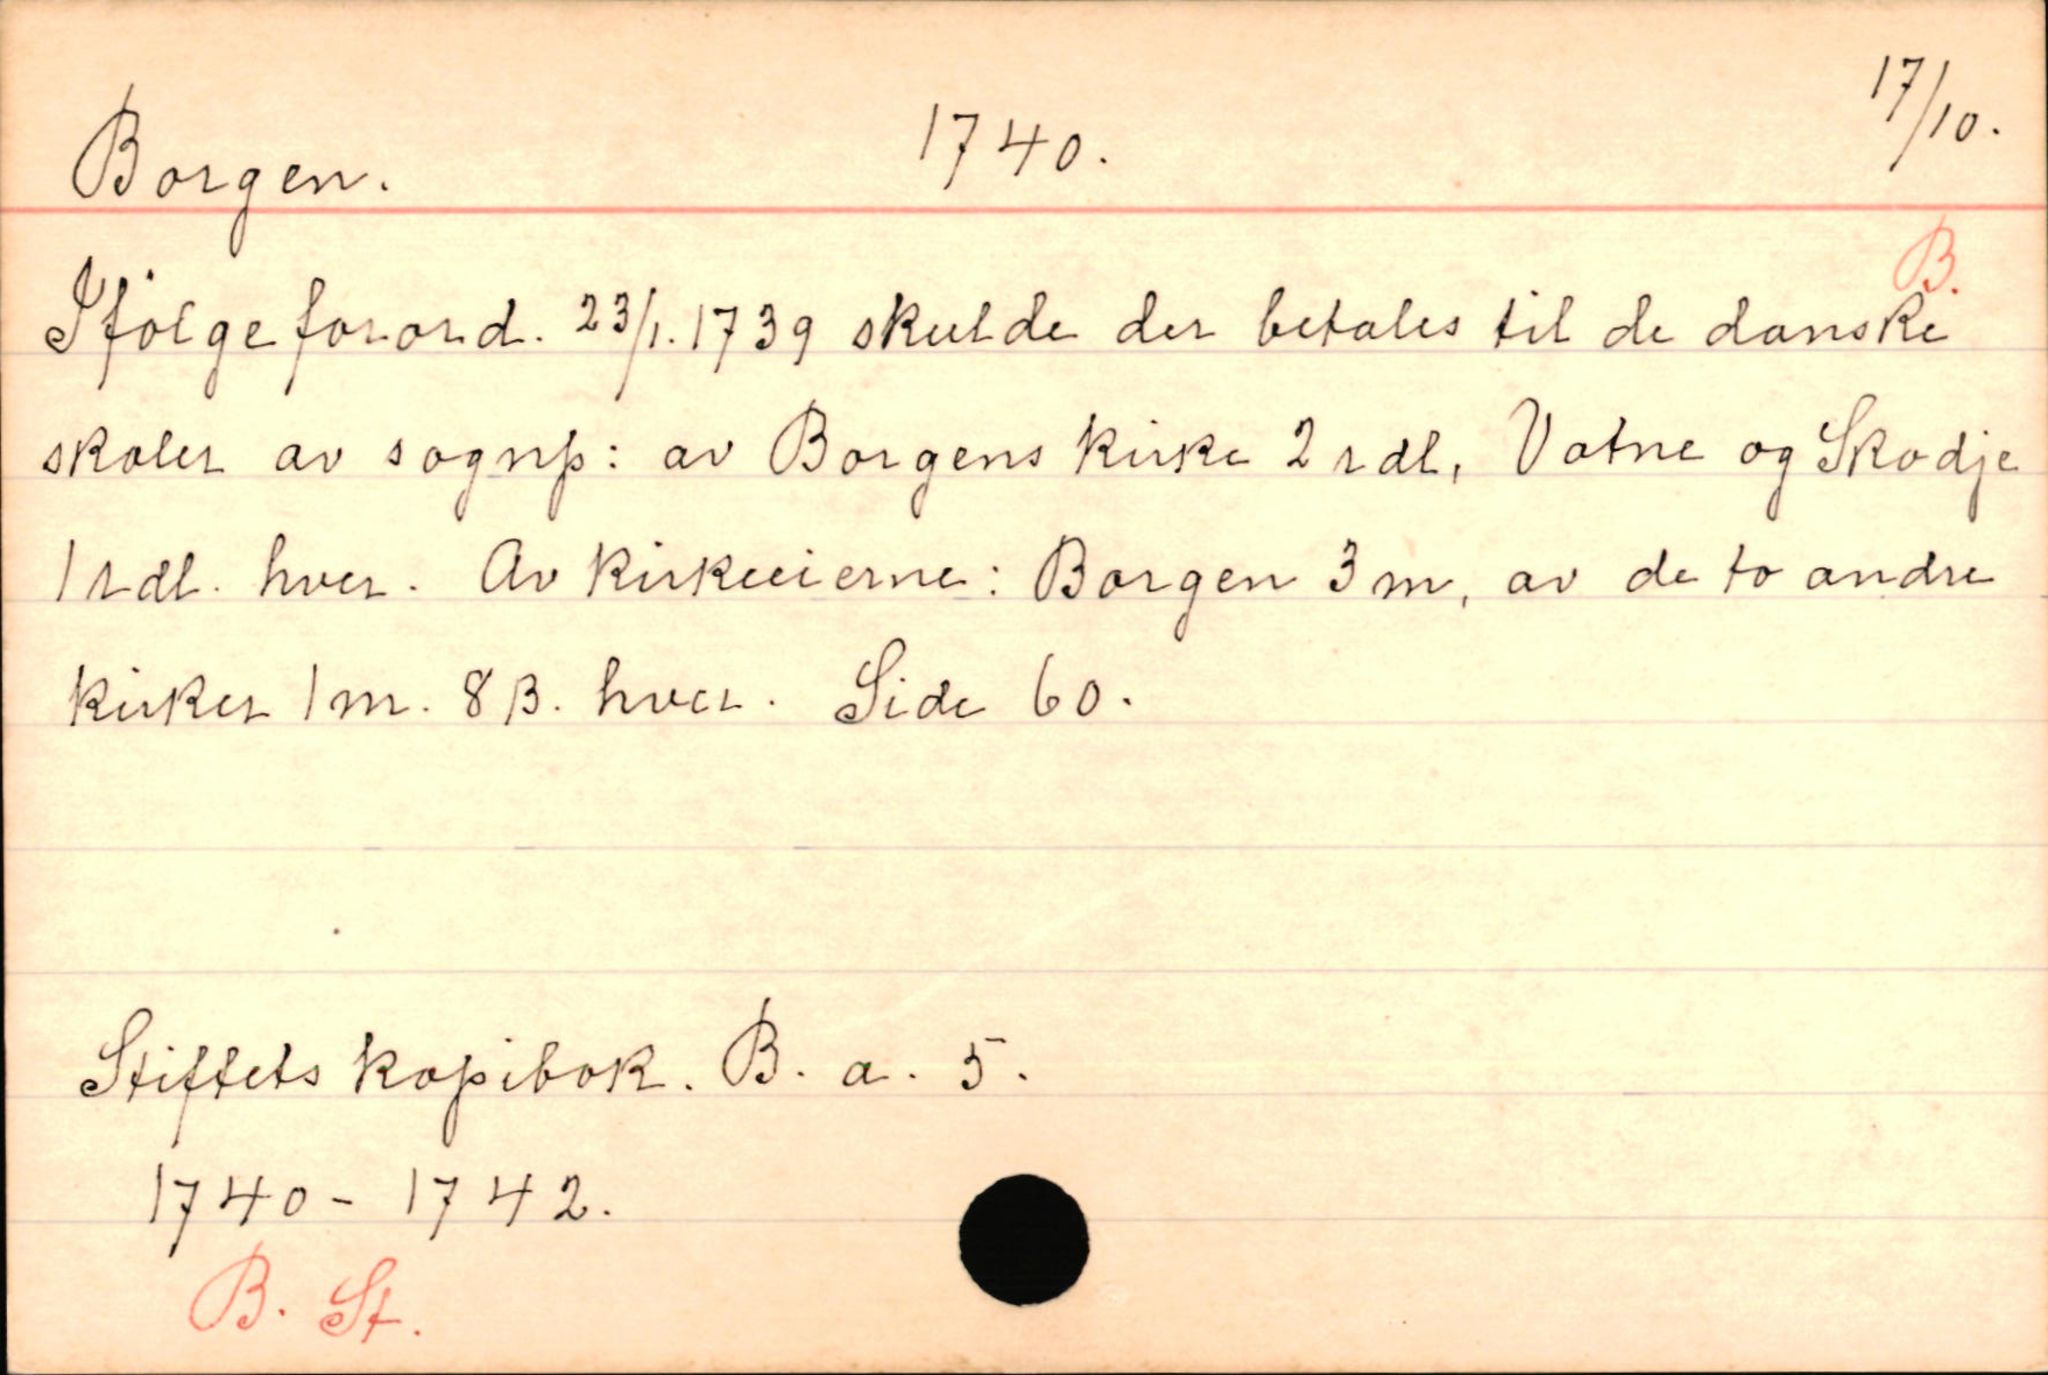 Borgen. 1740. 17/10.
B.
Ifølge forord. 23/1. 1739 skulde der betales til de danske
skoler av sognp: av Borgens kirke 2 rdl, Vatne og Skodje
1 rdl. hver. Av kirkeeierne: Borgen 3 m, av de to andre
kirker 1 m. 8 β. hver. Side 60.
Stiftets kopibok. B. a. 5.
1740 - 1742.
B. St.